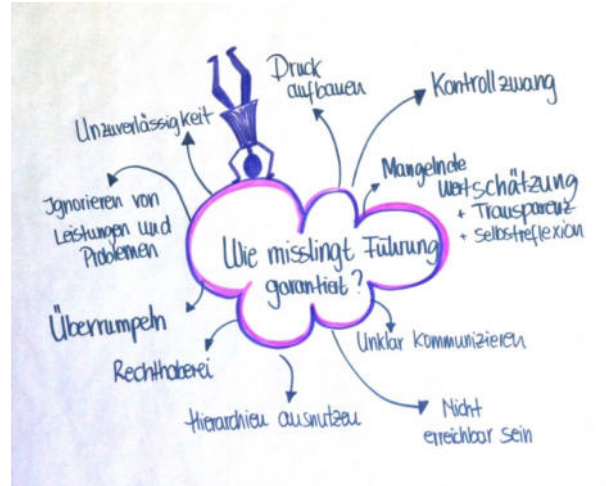 Wie misslingt Führung
garantiert?
Druck
aufbauen
Kontrollzwang
Mangelnde
Wertschätzung
+ Transparenz
+ Selbstreflexion
Unklar kommunizieren
Nicht
erreichbar sein
Hierarchien ausnutzen
Rechthaberei
Überrumpeln
Ignorieren von
Leistungen und
Problemen
Unzuverlässigkeit